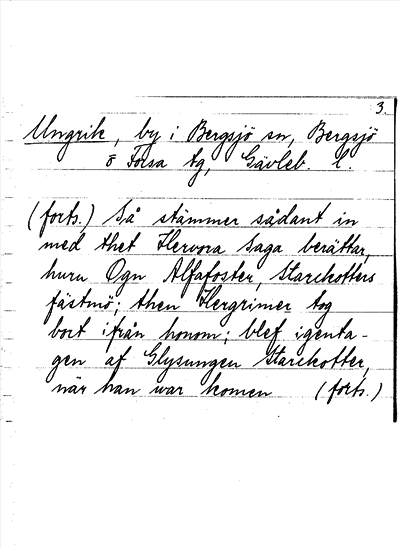 3.
Ungrik, by i Bergsjö sn, Bergsjö
o Forsa tg, Gävleb. l.
(forts.) Så stämmer sådant in
med thet Hervora Saga berättar,
huru Ogn Alfafoster, Starckotters
fästmö; then Hergrimer tog
bort ifrån honom; blef igenta-
gen af Glysungen Starckotter,
när han war komen (forts.)